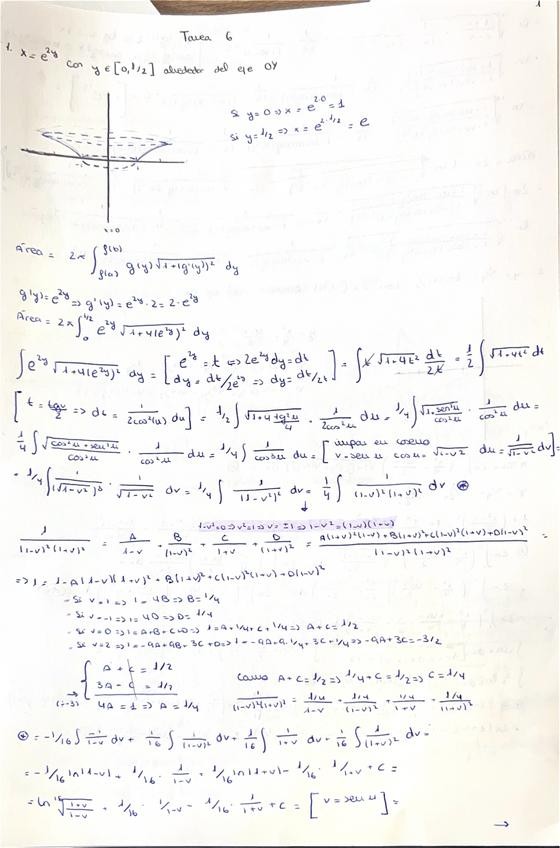 1
Tarea 6
1. x = e^{2y} con y ∈ [0, 1/2] alrededor del eje OY
Si y = 0 => x = e^{2·0} = 1
Si y = 1/2 => x = e^{2·1/2} = e
x=0
Área = 2π ∫_{f(a)}^{f(b)} g(y) √(1+(g'(y))²) dy
g(y) = e^{2y} => g'(y) = e^{2y}·2 = 2·e^{2y}
Área = 2π ∫_0^{1/2} e^{2y} √(1+4(e^{2y})²) dy
∫ e^{2y} √(1+4(e^{2y})²) dy = [e^{2y} = t => 2e^{2y}dy = dt dy = dt/2e^{2y} => dy = dt/2t] = ∫ t √(1+4t²) dt/2t = 1/2 ∫ √(1+4t²) dt
[t = tgu/2 => dt = 1/(2cos²(u)) du] = 1/2 ∫ √(1+4 tg²u/4) · 1/(2cos²u) du = 1/4 ∫ √(1+sen²u/cos²u) · 1/cos²u du =
1/4 ∫ √((cos²u + sen²u)/cos²u) · 1/cos²u du = 1/4 ∫ 1/cos³u du = [impar en coseno v = sen u cosu = √(1-v²) du = 1/√(1-v²) dv] =
= 1/4 ∫ 1/(√(1-v²))³ · 1/√(1-v²) dv = 1/4 ∫ 1/(1-v²)² dv = 1/4 ∫ 1/((1-v)²(1+v)²) dv ⊛
1-v²=0 => v²=1 => v = ±1 => 1-v² = (1-v)(1+v)
1/((1-v)²(1+v)²) = A/(1-v) + B/(1-v)² + C/(1+v) + D/(1+v)² = (A(1+v)²(1-v) + B(1+v)² + C(1-v)²(1+v) + D(1-v)²)/((1-v)²(1+v)²) =
=> 1 = A(1-v)(1+v)² + B(1+v)² + C(1-v)²(1+v) + D(1-v)²
- Si v = 1 => 1 = 4B => B = 1/4
- Si v = -1 => 1 = 4D => D = 1/4
- Si v = 0 => 1 = A+B+C+D => 1 = A + 1/4 + C + 1/4 => A + C = 1/2
- Si v = 2 => 1 = -9A + 9B + 3C + D => 1 = -9A + 9·1/4 + 3C + 1/4 => -9A + 3C = -3/2
{ A + C = 1/2
→(:-3) 3A - C = 1/2
4A = 1 => A = 1/4
Como A + C = 1/2 => 1/4 + C = 1/2 => C = 1/4
1/((1-v)²(1+v)²) = (1/4)/(1-v) + (1/4)/(1-v)² + (1/4)/(1+v) + (1/4)/(1+v)²
⊛ = -1/16 ∫ 1/(1-v) dv + 1/16 ∫ 1/(1-v)² dv + 1/16 ∫ 1/(1+v) dv + 1/16 ∫ 1/(1+v)² dv =
= -1/16 ln|1-v| + 1/16 · 1/(1-v) + 1/16 ln|1+v| - 1/16 · 1/(1+v) + C =
= ln ¹⁶√((1+v)/(1-v)) + 1/16 · 1/(1-v) - 1/16 · 1/(1+v) + C = [v = sen u] =
→